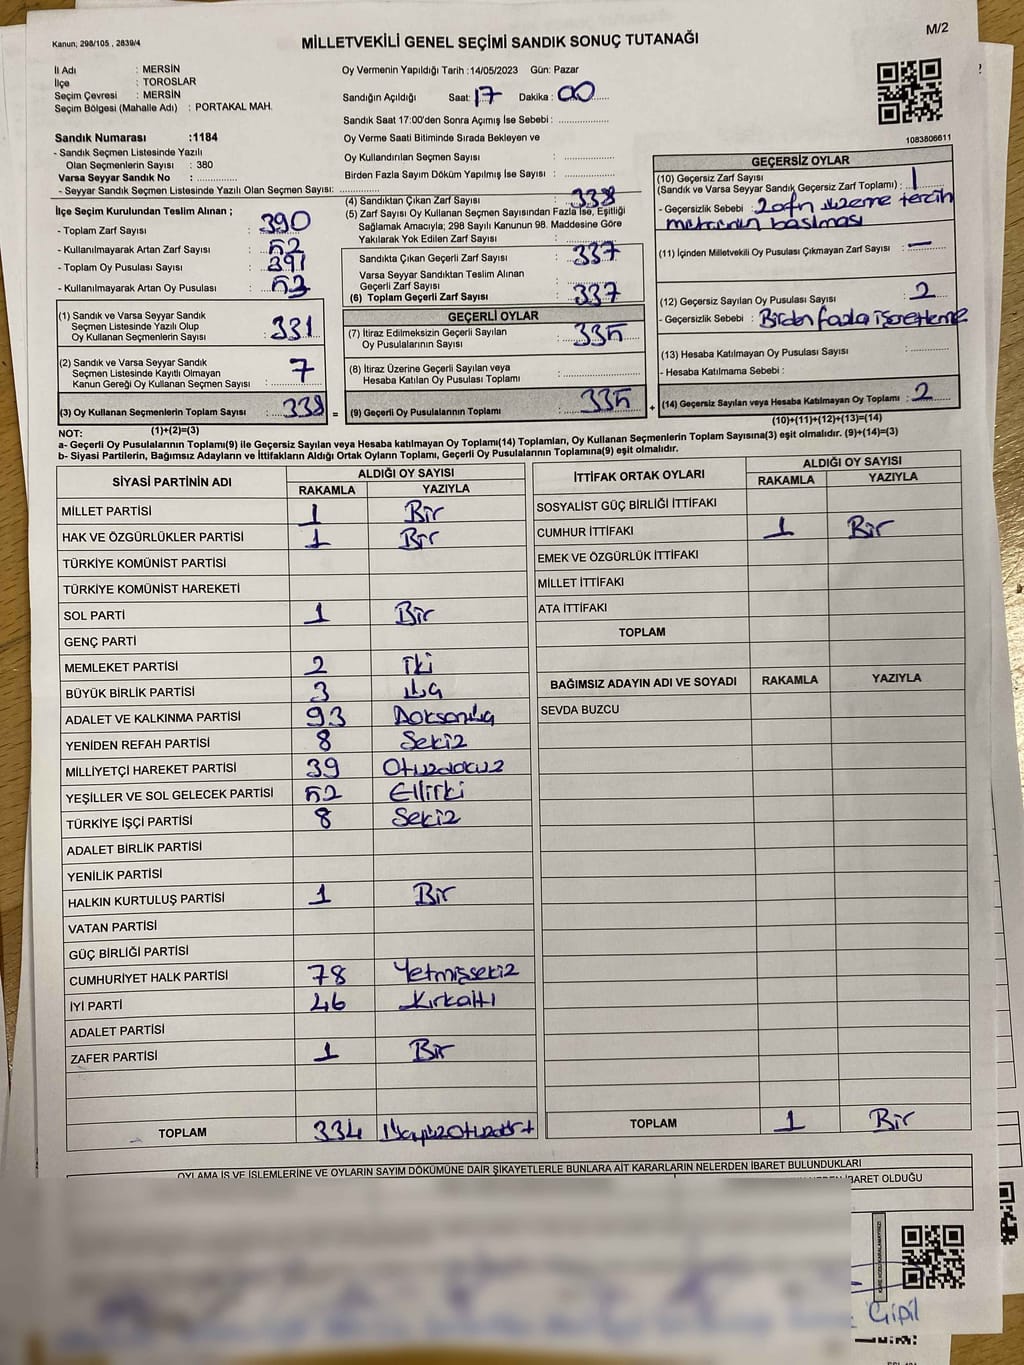 Kanun; 298/105 , 2839/4
M/2
MİLLETVEKİLİ GENEL SEÇİMİ SANDIK SONUÇ TUTANAĞI
İl Adı : MERSİN
İlçe : TOROSLAR
Seçim Çevresi : MERSİN
Seçim Bölgesi (Mahalle Adı) : PORTAKAL MAH.
Sandık Numarası :1184
- Sandık Seçmen Listesinde Yazılı
Olan Seçmenlerin Sayısı : 380
Varsa Seyyar Sandık No :
- Seyyar Sandık Seçmen Listesinde Yazılı Olan Seçmen Sayısı:
Oy Vermenin Yapıldığı Tarih :14/05/2023 Gün: Pazar
Sandığın Açıldığı Saat: 17 Dakika : 00
Sandık Saat 17:00'den Sonra Açımış İse Sebebi :
Oy Verme Saati Bitiminde Sırada Bekleyen ve
Oy Kullandırılan Seçmen Sayısı :
Birden Fazla Sayım Döküm Yapılmış İse Sayısı :
1083806611
İlçe Seçim Kurulundan Teslim Alınan ;
- Toplam Zarf Sayısı : 390
- Kullanılmayarak Artan Zarf Sayısı : 52
- Toplam Oy Pusulası Sayısı : 391
- Kullanılmayarak Artan Oy Pusulası : 53
(1) Sandık ve Varsa Seyyar Sandık
Seçmen Listesinde Yazılı Olup
Oy Kullanan Seçmenlerin Sayısı : 331
(2) Sandık ve Varsa Seyyar Sandık
Seçmen Listesinde Kayıtlı Olmayan
Kanun Gereği Oy Kullanan Seçmen Sayısı : 7
(3) Oy Kullanan Seçmenlerin Toplam Sayısı : 338 =
(1)+(2)=(3)
(4) Sandıktan Çıkan Zarf Sayısı : 338
(5) Zarf Sayısı Oy Kullanan Seçmen Sayısından Fazla İse, Eşitliği
Sağlamak Amacıyla; 298 Sayılı Kanunun 98. Maddesine Göre
Yakılarak Yok Edilen Zarf Sayısı :
Sandıkta Çıkan Geçerli Zarf Sayısı : 337
Varsa Seyyar Sandıktan Teslim Alınan
Geçerli Zarf Sayısı :
(6) Toplam Geçerli Zarf Sayısı : 337
GEÇERLİ OYLAR
(7) İtiraz Edilmeksizin Geçerli Sayılan
Oy Pusulalarının Sayısı : 335
(8) İtiraz Üzerine Geçerli Sayılan veya
Hesaba Katılan Oy Pusulası Toplamı :
(9) Geçerli Oy Pusulalarının Toplamı : 335 +
GEÇERSİZ OYLAR
(10) Geçersiz Zarf Sayısı
(Sandık ve Varsa Seyyar Sandık Geçersiz Zarf Toplamı) : 1
- Geçersizlik Sebebi : Zarfın üzerine tercih
mührünün basılması
(11) İçinden Milletvekili Oy Pusulası Çıkmayan Zarf Sayısı : —
(12) Geçersiz Sayılan Oy Pusulası Sayısı : 2
- Geçersizlik Sebebi : Birden fazla işaretleme
(13) Hesaba Katılmayan Oy Pusulası Sayısı :
- Hesaba Katılmama Sebebi :
(14) Geçersiz Sayılan veya Hesaba Katılmayan Oy Toplamı : 2
(10)+(11)+(12)+(13)=(14)
NOT:
a- Geçerli Oy Pusulalarının Toplamı(9) ile Geçersiz Sayılan veya Hesaba katılmayan Oy Toplamı(14) Toplamları, Oy Kullanan Seçmenlerin Toplam Sayısına(3) eşit olmalıdır. (9)+(14)=(3)
b- Siyasi Partilerin, Bağımsız Adayların ve İttifakların Aldığı Ortak Oyların Toplamı, Geçerli Oy Pusulalarının Toplamına(9) eşit olmalıdır.
SİYASİ PARTİNİN ADI ALDIĞI OY SAYISI
RAKAMLA YAZIYLA
MİLLET PARTİSİ 1 Bir
HAK VE ÖZGÜRLÜKLER PARTİSİ 1 Bir
TÜRKİYE KOMÜNİST PARTİSİ
TÜRKİYE KOMÜNİST HAREKETİ
SOL PARTİ 1 Bir
GENÇ PARTİ
MEMLEKET PARTİSİ 2 İki
BÜYÜK BİRLİK PARTİSİ 3 üç
ADALET VE KALKINMA PARTİSİ 93 Doksanüç
YENİDEN REFAH PARTİSİ 8 Sekiz
MİLLİYETÇİ HAREKET PARTİSİ 39 Otuzdokuz
YEŞİLLER VE SOL GELECEK PARTİSİ 52 Elliiki
TÜRKİYE İŞÇİ PARTİSİ 8 Sekiz
ADALET BİRLİK PARTİSİ
YENİLİK PARTİSİ
HALKIN KURTULUŞ PARTİSİ 1 Bir
VATAN PARTİSİ
GÜÇ BİRLİĞİ PARTİSİ
CUMHURİYET HALK PARTİSİ 78 Yetmişsekiz
İYİ PARTİ 46 Kırkaltı
ADALET PARTİSİ
ZAFER PARTİSİ 1 Bir
TOPLAM 334 Üçyüzotuzdört
İTTİFAK ORTAK OYLARI ALDIĞI OY SAYISI
RAKAMLA YAZIYLA
SOSYALİST GÜÇ BİRLİĞİ İTTİFAKI
CUMHUR İTTİFAKI 1 Bir
EMEK VE ÖZGÜRLÜK İTTİFAKI
MİLLET İTTİFAKI
ATA İTTİFAKI
TOPLAM
BAĞIMSIZ ADAYIN ADI VE SOYADI RAKAMLA YAZIYLA
SEVDA BUZCU
TOPLAM 1 Bir
OYLAMA İŞ VE İŞLEMLERİNE VE OYLARIN SAYIM DÖKÜMÜNE DAİR ŞİKAYETLERLE BUNLARA AİT KARARLARIN NELERDEN İBARET BULUNDUKLARI
İBARET OLDUĞU